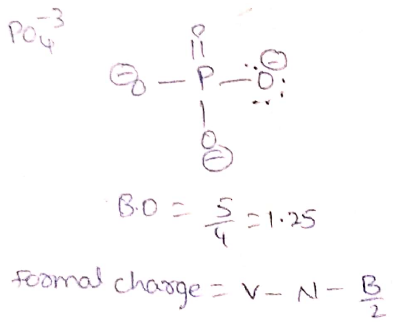 PO₄⁻³
O
||
⊖O — P — Ö: ⊖
|
O
⊖
B.O = 5/4 = 1.25
Formal charge = V - N - B/2